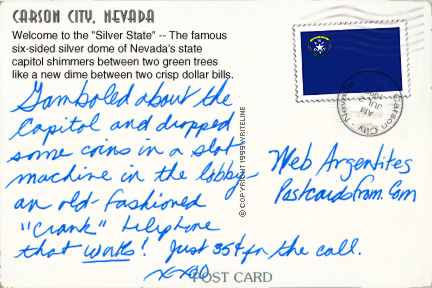 CARSON CITY, NEVADA
Welcome to the "Silver State" -- The famous
six-sided silver dome of Nevada's state
capitol shimmers between two green trees
like a new dime between two crisp dollar bills.
Gamboled about the
Capitol and dropped
some coins in a slot
machine in the lobby-
an old-fashioned
"crank" telephone
that works! Just 35¢ for the call.
xxoo
© COPYRIGHT 1995 WRITELINE
Web Argentites
Postcardsfrom.Com
Carson City - Nevada
AM
JUL
POST CARD